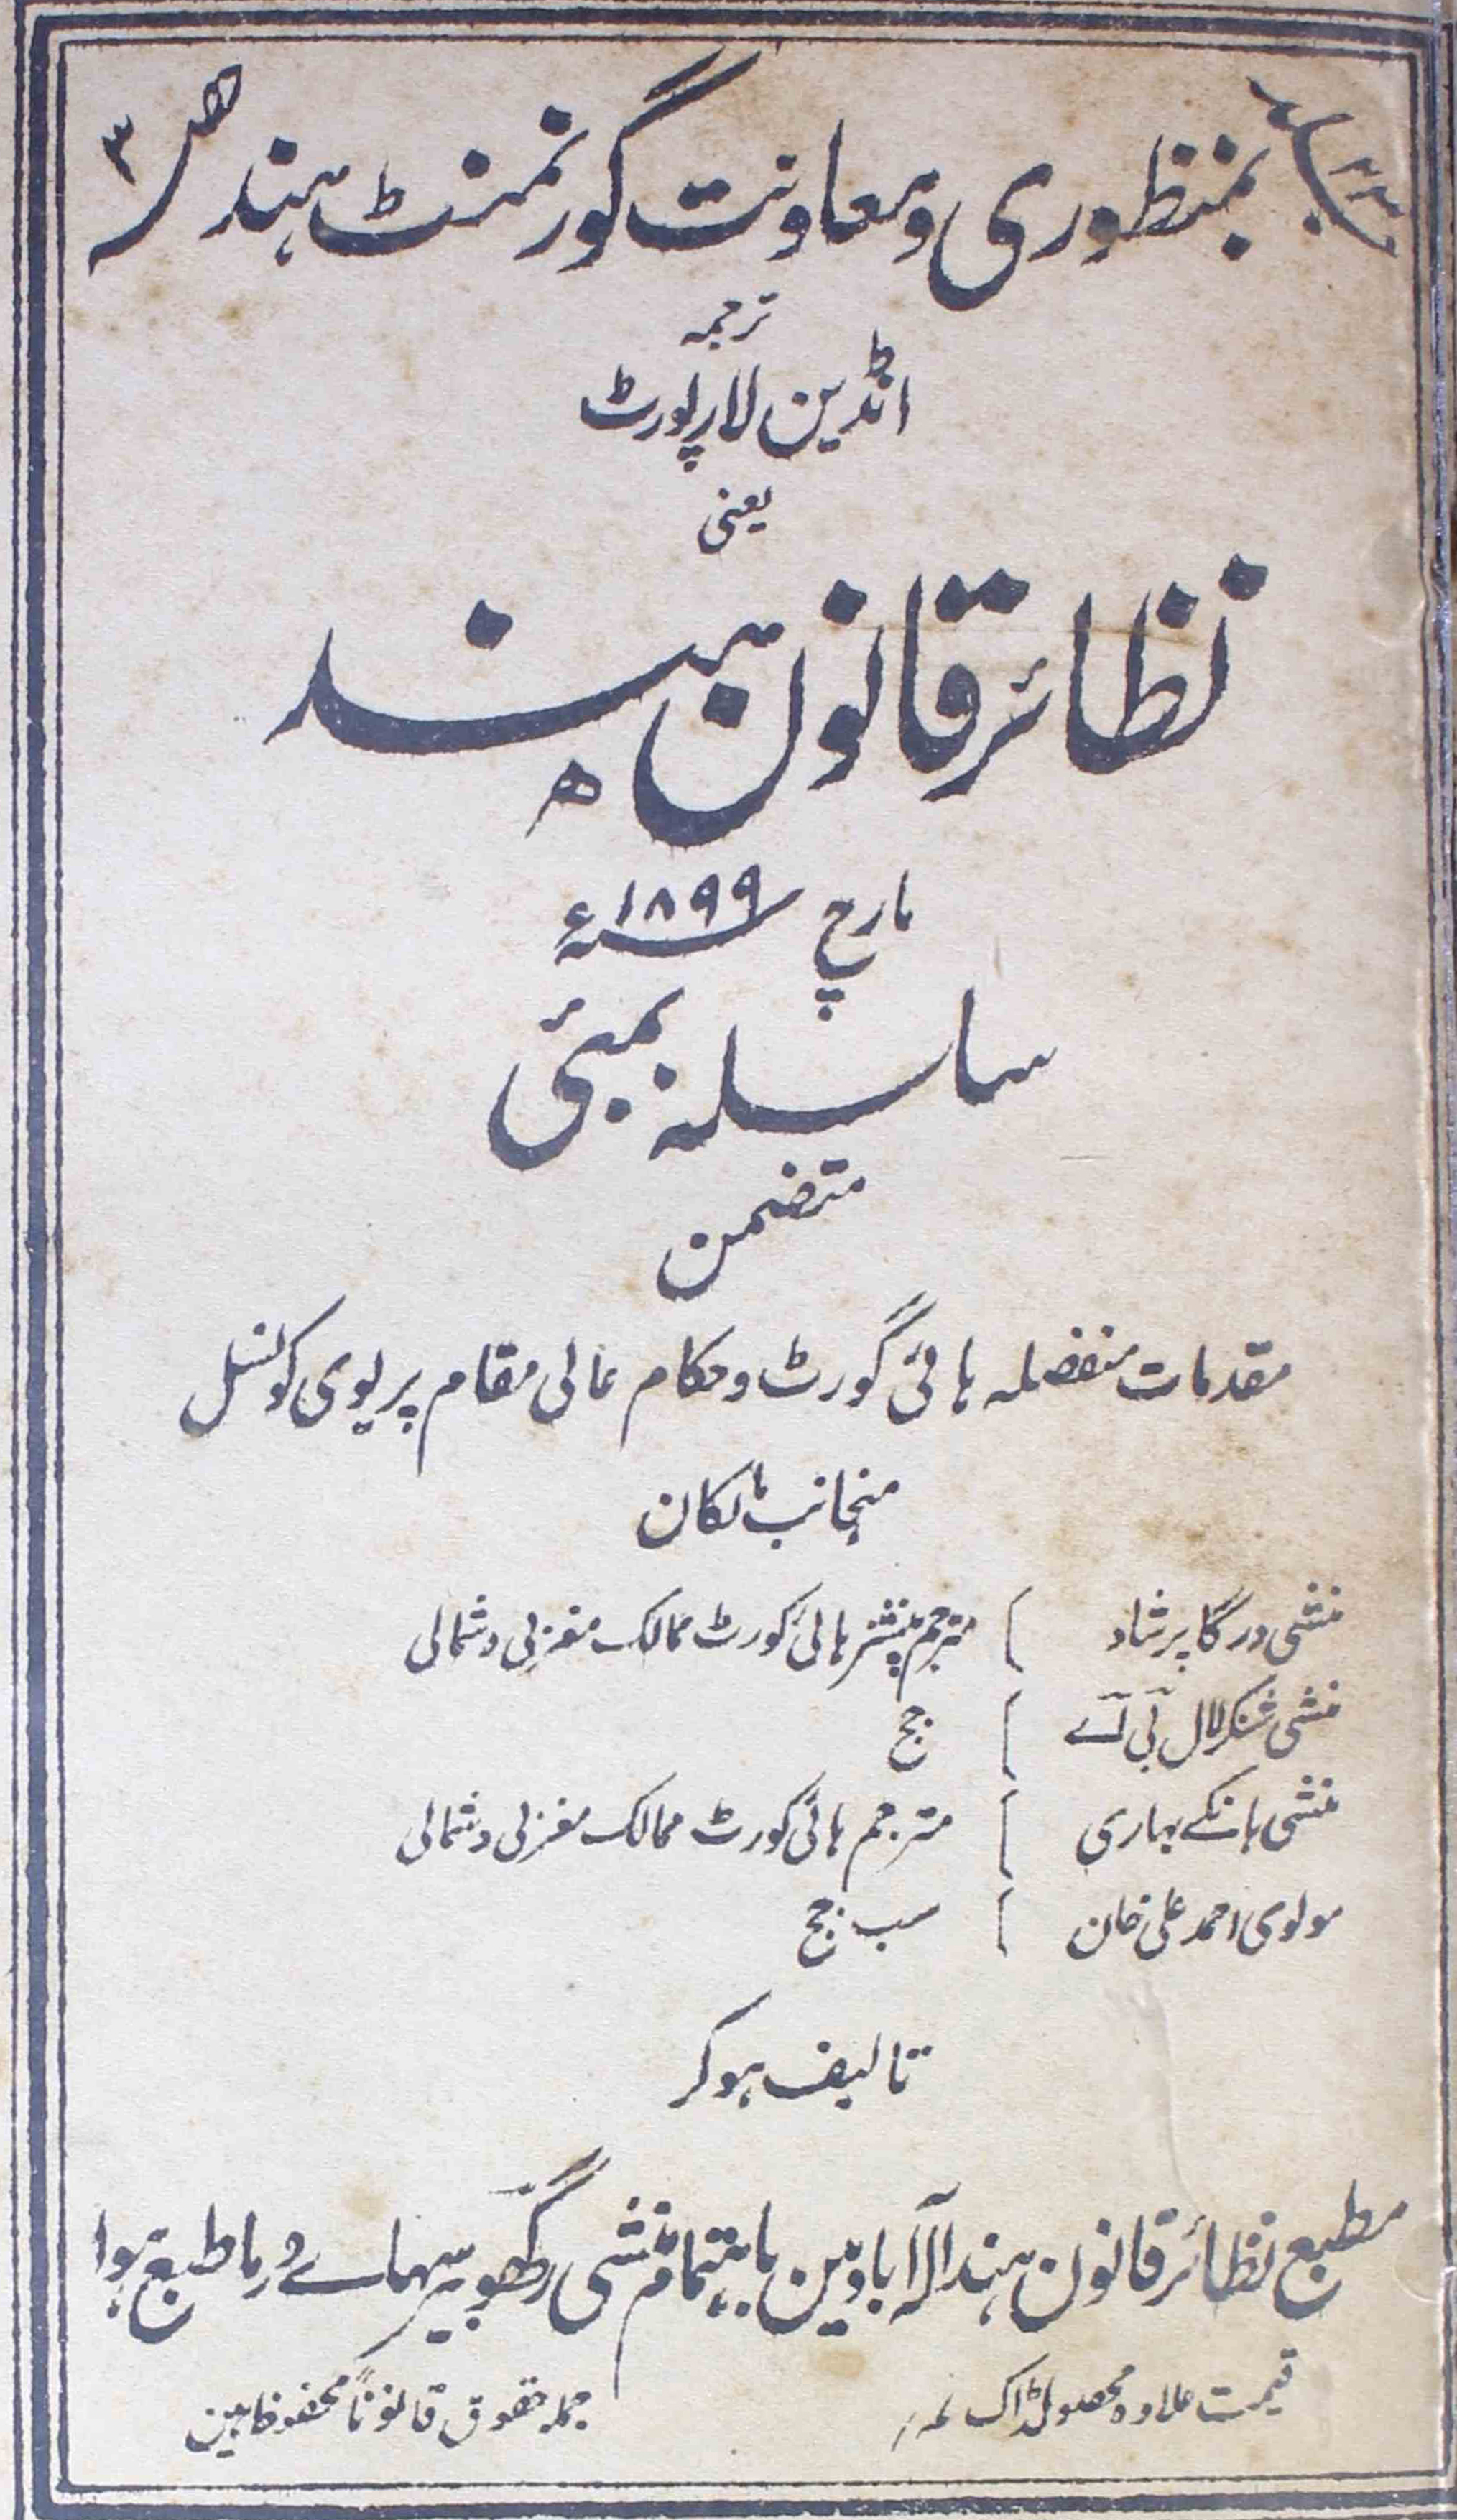 بمنظوری ومعاونت گورنمنٹ ہند
ترجمہ
انڈین لارپورٹ
یعنی
نظائر قانون ہند
مارچ ۱۸۹۹ء
سلسلہ بمبئی
متضمن
مقدمات منفصلہ ہائی گورٹ وحکام عالی مقام پریوی کونسل
منجانب مالکان
منشی درگا پرشاد مترجم پنشنر ہائی کورٹ ممالک مغربی وشمالی
منشی شنکرلال بی اے جج
منشی بانکے بہاری مترجم ہائی کورٹ ممالک مغربی وشمالی
مولوی احمد علی خان سب جج
تالیف ہوکر
مطبع نظائر قانون ہند الہ آباد مین باہتمام منشی رگھوبیر سہاے ورما طبع ہوا
قیمت علاوہ محصولڈاک
جملہ حقوق قانوناً محفوظ ہین